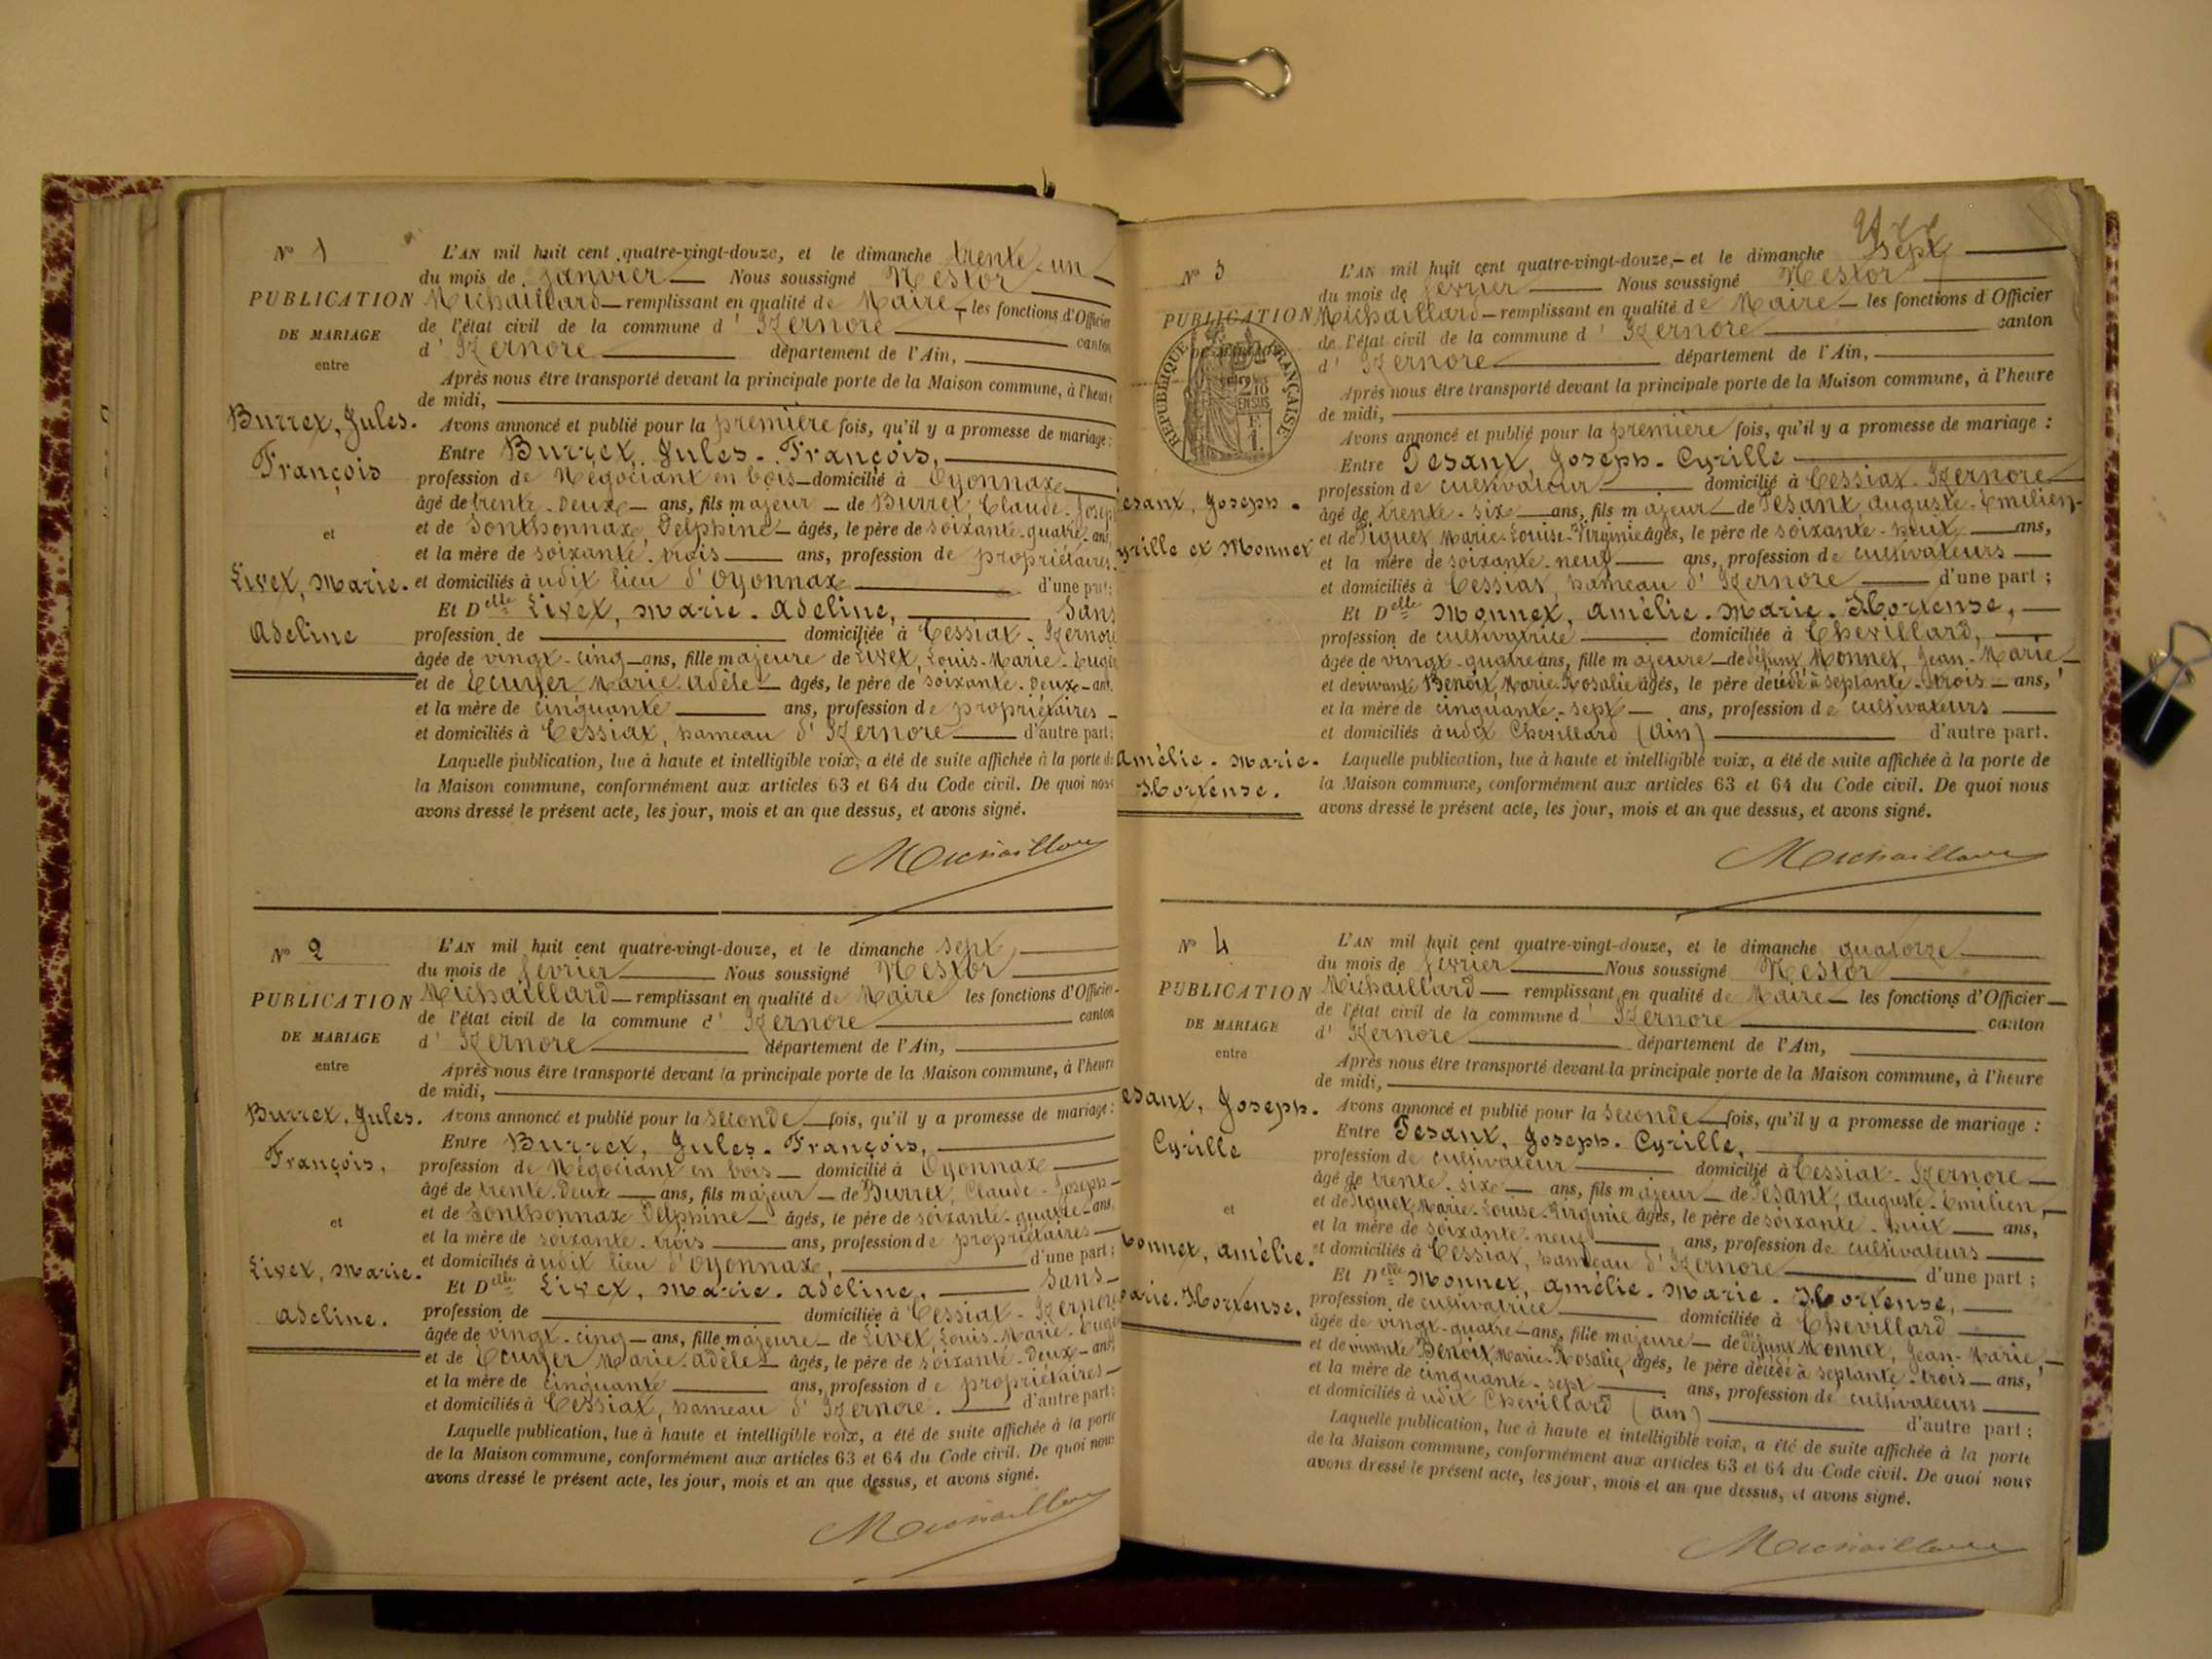 N° 1
PUBLICATION
DE MARIAGE
entre
Burret, Jules.
François
et
Livet, Marie.
Adeline
L'AN mil huit cent quatre-vingt-douze, et le dimanche trente-un
du mois de janvier Nous soussigné Nestor
Michaillard remplissant en qualité de Maire, les fonctions d'Officier
de l'état civil de la commune d' Izernore canton
d' Izernore département de l'Ain,
Après nous être transporté devant la principale porte de la Maison commune, à l'heure
de midi,
Avons annoncé et publié pour la première fois, qu'il y a promesse de mariage :
Entre Burret, Jules-François,
profession de Négociant en bois domicilié à Oyonnax
âgé de trente-deux ans, fils majeur de Burret, Claude-Joseph
et de Sonthonnax, Delphine âgés, le père de soixante-quatre ans
et la mère de soixante-trois ans, profession de propriétaires.
et domiciliés à udit lieu d'Oyonnax d'une part;
Et Delle Livet, Marie-Adeline, Sans
profession de domiciliée à Cessiat-Izernore
âgée de vingt-cinq ans, fille majeure de Livet, Louis-Marie-
et de Ecuyer Marie Adèle âgés, le père de soixante-deux ans.
et la mère de cinquante ans, profession de propriétaires
et domiciliés à Cessiat, hameau d'Izernore d'autre part;
Laquelle publication, lue à haute et intelligible voix, a été de suite affichée à la porte de
la Maison commune, conformément aux articles 63 et 64 du Code civil. De quoi nous
avons dressé le présent acte, les jour, mois et an que dessus, et avons signé.
Michaillard
N° 2
PUBLICATION
DE MARIAGE
entre
Burret, Jules.
François,
et
Livet, Marie.
Adeline.
L'AN mil huit cent quatre-vingt-douze, et le dimanche sept
du mois de février Nous soussigné Nestor
Michaillard remplissant en qualité de Maire les fonctions d'Officier
de l'état civil de la commune d' Izernore canton
d' Izernore département de l'Ain,
Après nous être transporté devant la principale porte de la Maison commune, à l'heure
de midi,
Avons annoncé et publié pour la seconde fois, qu'il y a promesse de mariage :
Entre Burret, Jules-François,
profession de Négociant en bois domicilié à Oyonnax
âgé de trente-deux ans, fils majeur de Burret, Claude-Joseph
et de Sonthonnax Delphine âgés, le père de soixante-quatre ans,
et la mère de soixante-trois ans, profession de propriétaires
et domiciliés à udit lieu d'Oyonnax, d'une part;
Et Delle Livet, Marie-Adeline, Sans
profession de domiciliée à Cessiat-Izernore
âgée de vingt-cinq ans, fille majeure de Livet, Louis-Marie-
et de Ecuyer Marie Adèle âgés, le père de soixante-deux ans,
et la mère de cinquante ans, profession de propriétaires
et domiciliés à Cessiat, hameau d'Izernore. d'autre part;
Laquelle publication, lue à haute et intelligible voix, a été de suite affichée à la porte
de la Maison commune, conformément aux articles 63 et 64 du Code civil. De quoi nous
avons dressé le présent acte, les jour, mois et an que dessus, et avons signé.
Michaillard
N° 3
PUBLICATION
RÉPUBLIQUE FRANÇAISE
2/10 EN SUS
esant, Joseph.
yrille et Monnet
Amélie-Marie.
Hortense.
L'AN mil huit cent quatre-vingt-douze, et le dimanche sept
du mois de février Nous soussigné Nestor
Michaillard remplissant en qualité de Maire les fonctions d'Officier
de l'état civil de la commune d' Izernore canton
d' Izernore département de l'Ain,
Après nous être transporté devant la principale porte de la Maison commune, à l'heure
de midi,
Avons annoncé et publié pour la première fois, qu'il y a promesse de mariage :
Entre Tesant, Joseph-Cyrille
profession de cultivateur domicilié à Cessiat-Izernore
âgé de trente-six ans, fils majeur de Tesant, Auguste-Emilien
et de Piquet Marie-Louise-Virginie âgés, le père de soixante-huit ans,
et la mère de soixante-neuf ans, profession de cultivateurs
et domiciliés à Cessiat, hameau d'Izernore d'une part;
Et Delle Monnet, Amélie-Marie-Hortense,
profession de cultivatrice domiciliée à Chevillard,
âgée de vingt-quatre ans, fille majeure de défunt Monnet, Jean-Marie
et de vivante Benoît, Marie-Rosalie âgés, le père décédé à septante-trois ans,
et la mère de cinquante-sept ans, profession de cultivateurs
et domiciliés à udit Chevillard (Ain) d'autre part.
Laquelle publication, lue à haute et intelligible voix, a été de suite affichée à la porte de
la Maison commune, conformément aux articles 63 et 64 du Code civil. De quoi nous
avons dressé le présent acte, les jour, mois et an que dessus, et avons signé.
Michaillard
N° 4
PUBLICATION
DE MARIAGE
entre
esant, Joseph.
Cyrille
et
onnet, Amélie.
arie-Hortense.
L'AN mil huit cent quatre-vingt-douze, et le dimanche quatorze
du mois de février Nous soussigné Nestor
Michaillard remplissant en qualité de Maire les fonctions d'Officier
de l'état civil de la commune d' Izernore canton
d' Izernore département de l'Ain,
Après nous être transporté devant la principale porte de la Maison commune, à l'heure
de midi,
Avons annoncé et publié pour la seconde fois, qu'il y a promesse de mariage :
Entre Tesant, Joseph-Cyrille,
profession de cultivateur domicilié à Cessiat-Izernore
âgé de trente-six ans, fils majeur de Tesant, Auguste-Emilien,
et de Piquet, Marie-Louise-Virginie âgés, le père de soixante-huit ans,
et la mère de soixante-neuf ans, profession de cultivateurs
et domiciliés à Cessiat, hameau d'Izernore d'une part;
Et Delle Monnet, Amélie-Marie-Hortense,
profession de cultivatrice domiciliée à Chevillard
âgée de vingt-quatre ans, fille majeure de défunt Monnet, Jean-Marie,
et de vivante Benoît, Marie-Rosalie âgés, le père décédé à septante-trois ans,
et la mère de cinquante-sept ans, profession de cultivateurs
et domiciliés à udit Chevillard (Ain) d'autre part;
Laquelle publication, lue à haute et intelligible voix, a été de suite affichée à la porte
de la Maison commune, conformément aux articles 63 et 64 du Code civil. De quoi nous
avons dressé le présent acte, les jour, mois et an que dessus, et avons signé.
Michaillard